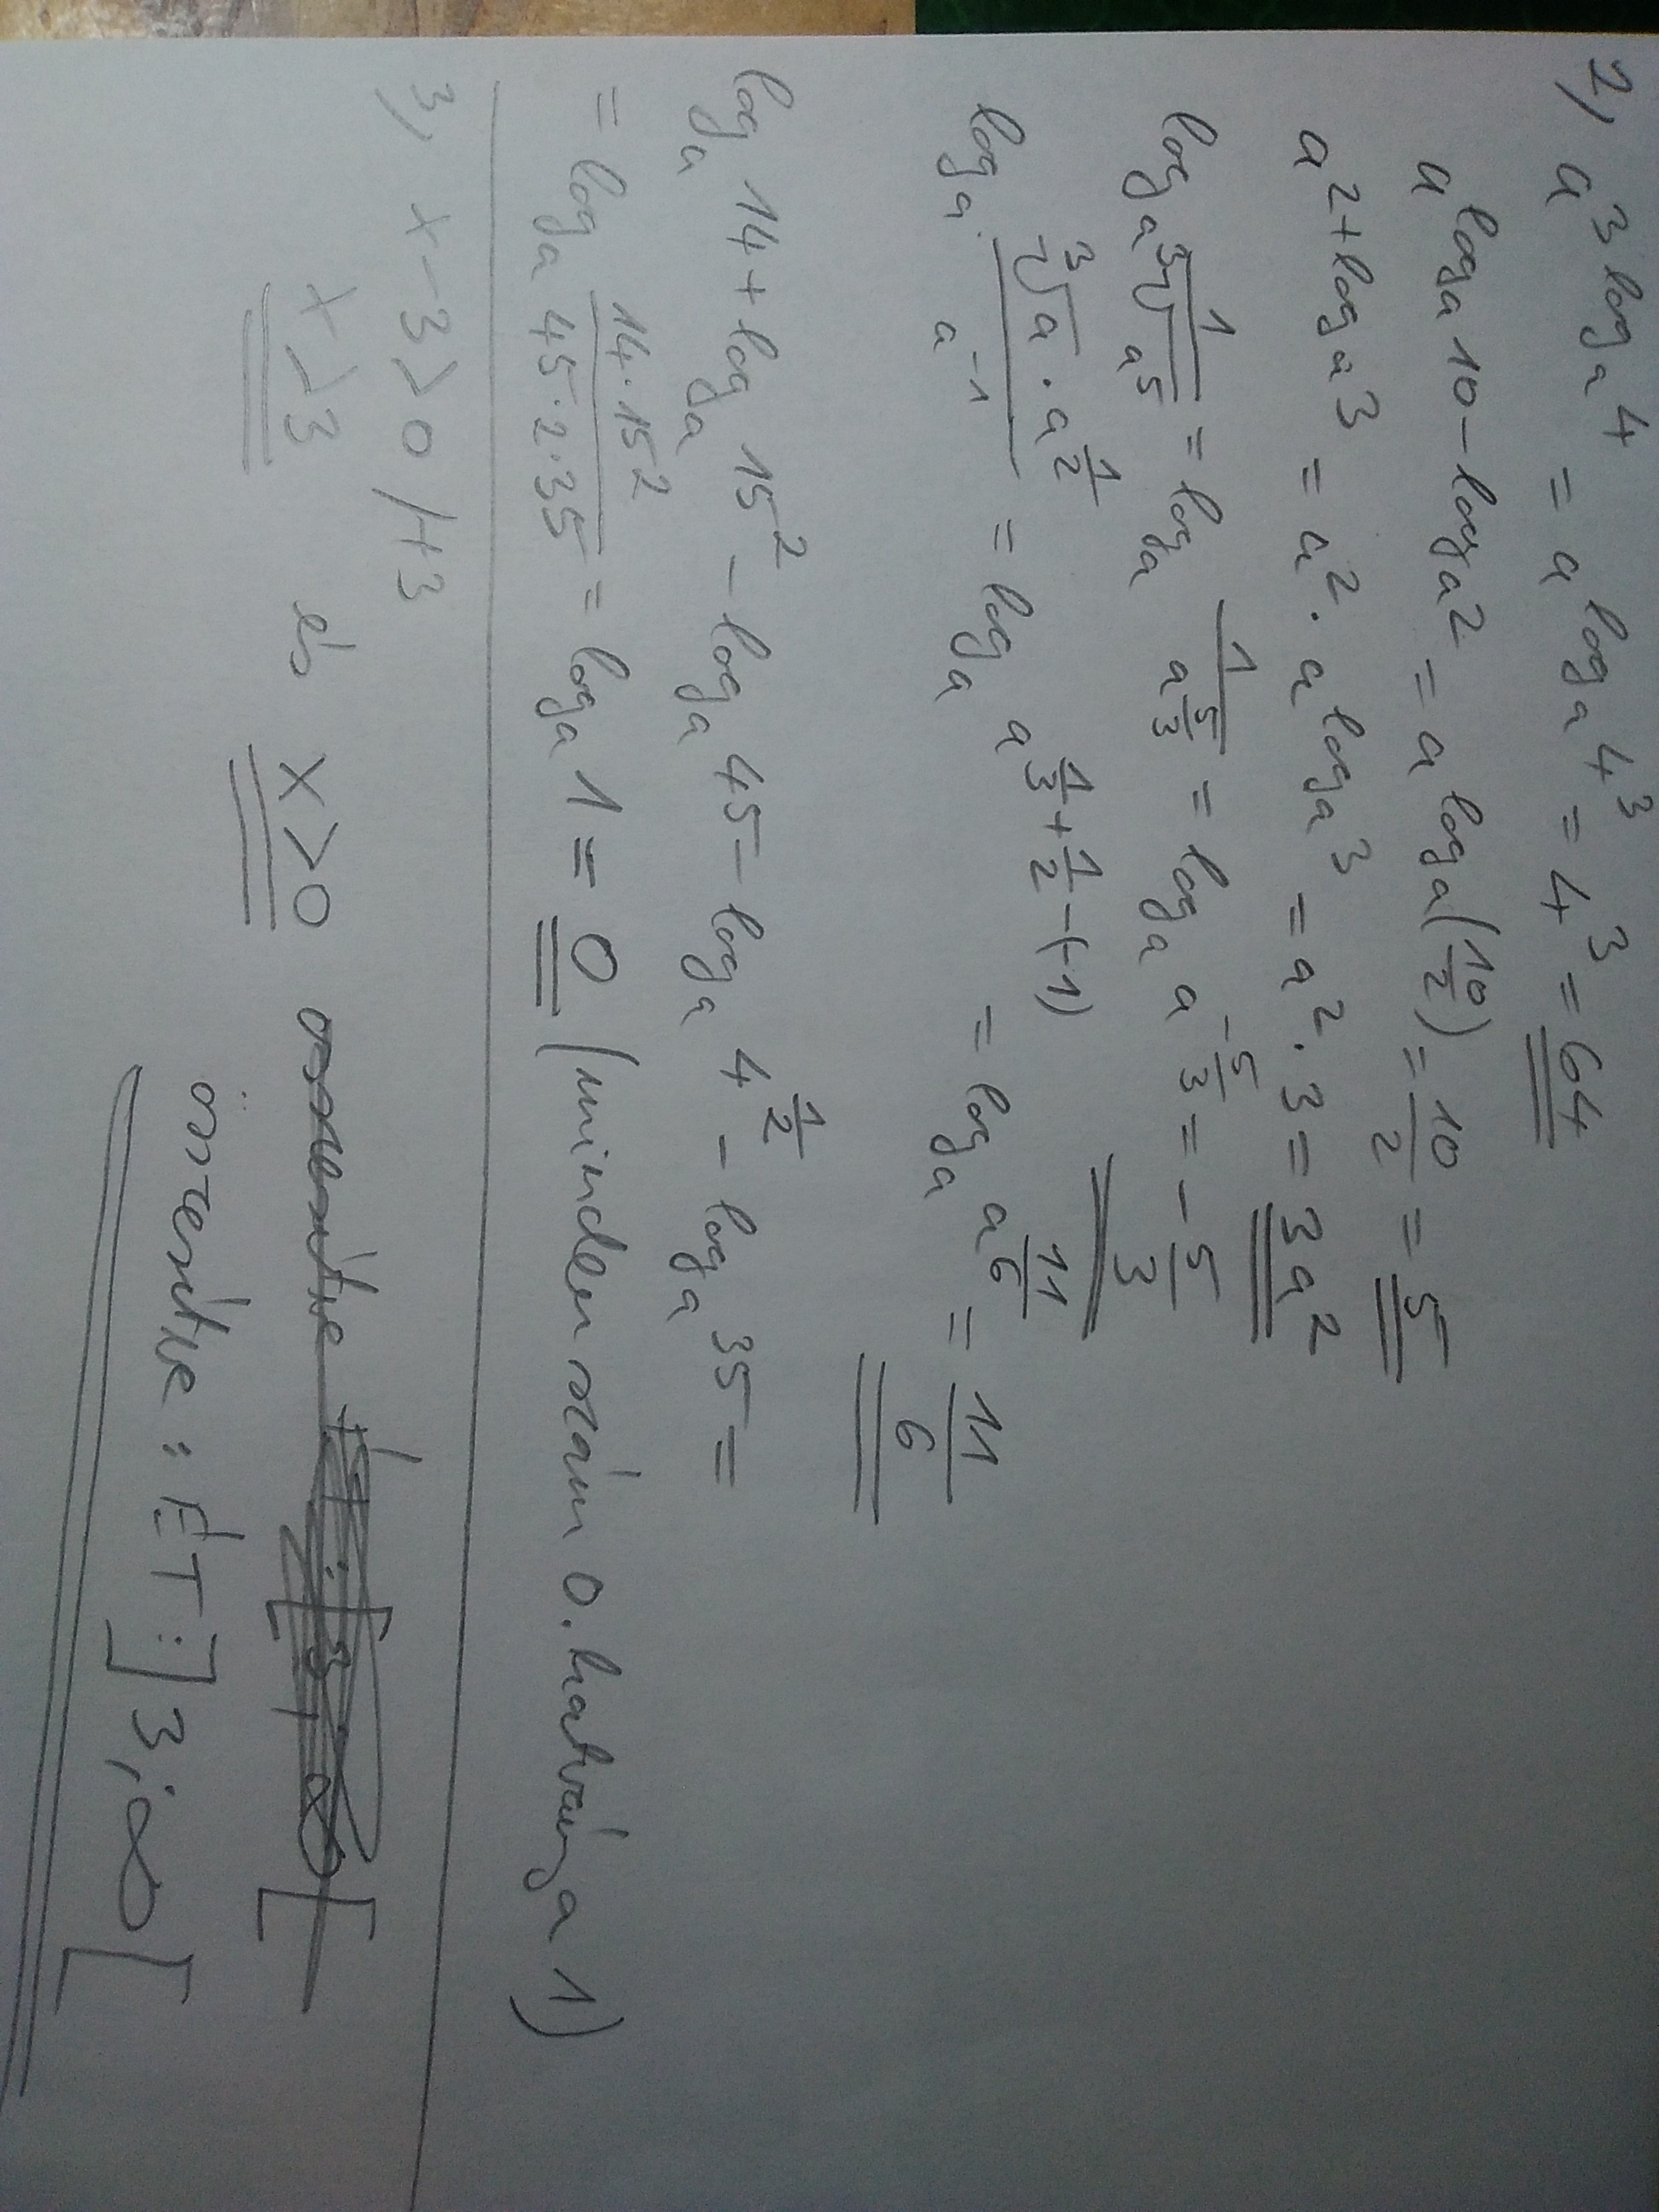 2, a^{3 log_a 4} = a^{log_a 4^3} = 4^3 = 64
a^{log_a 10 - log_a 2} = a^{log_a (10/2)} = 10/2 = 5
a^{2 + log_a 3} = a^2 · a^{log_a 3} = a^2 · 3 = 3a^2
log_a 1/∛(a^5) = log_a 1/a^{5/3} = log_a a^{-5/3} = -5/3
log_a (∛a · a^{1/2})/a^{-1} = log_a a^{1/3 + 1/2 - (-1)} = log_a a^{11/6} = 11/6
log_a 14 + log_a 15^2 - log_a 45 - log_a 4^{1/2} - log_a 35 =
= log_a (14·15^2)/(45·2·35) = log_a 1 = 0 (minden szám 0. hatványa 1)
3, x - 3 > 0 /+3
x > 3 és x > 0
összesítve : ÉT :]3; ∞[